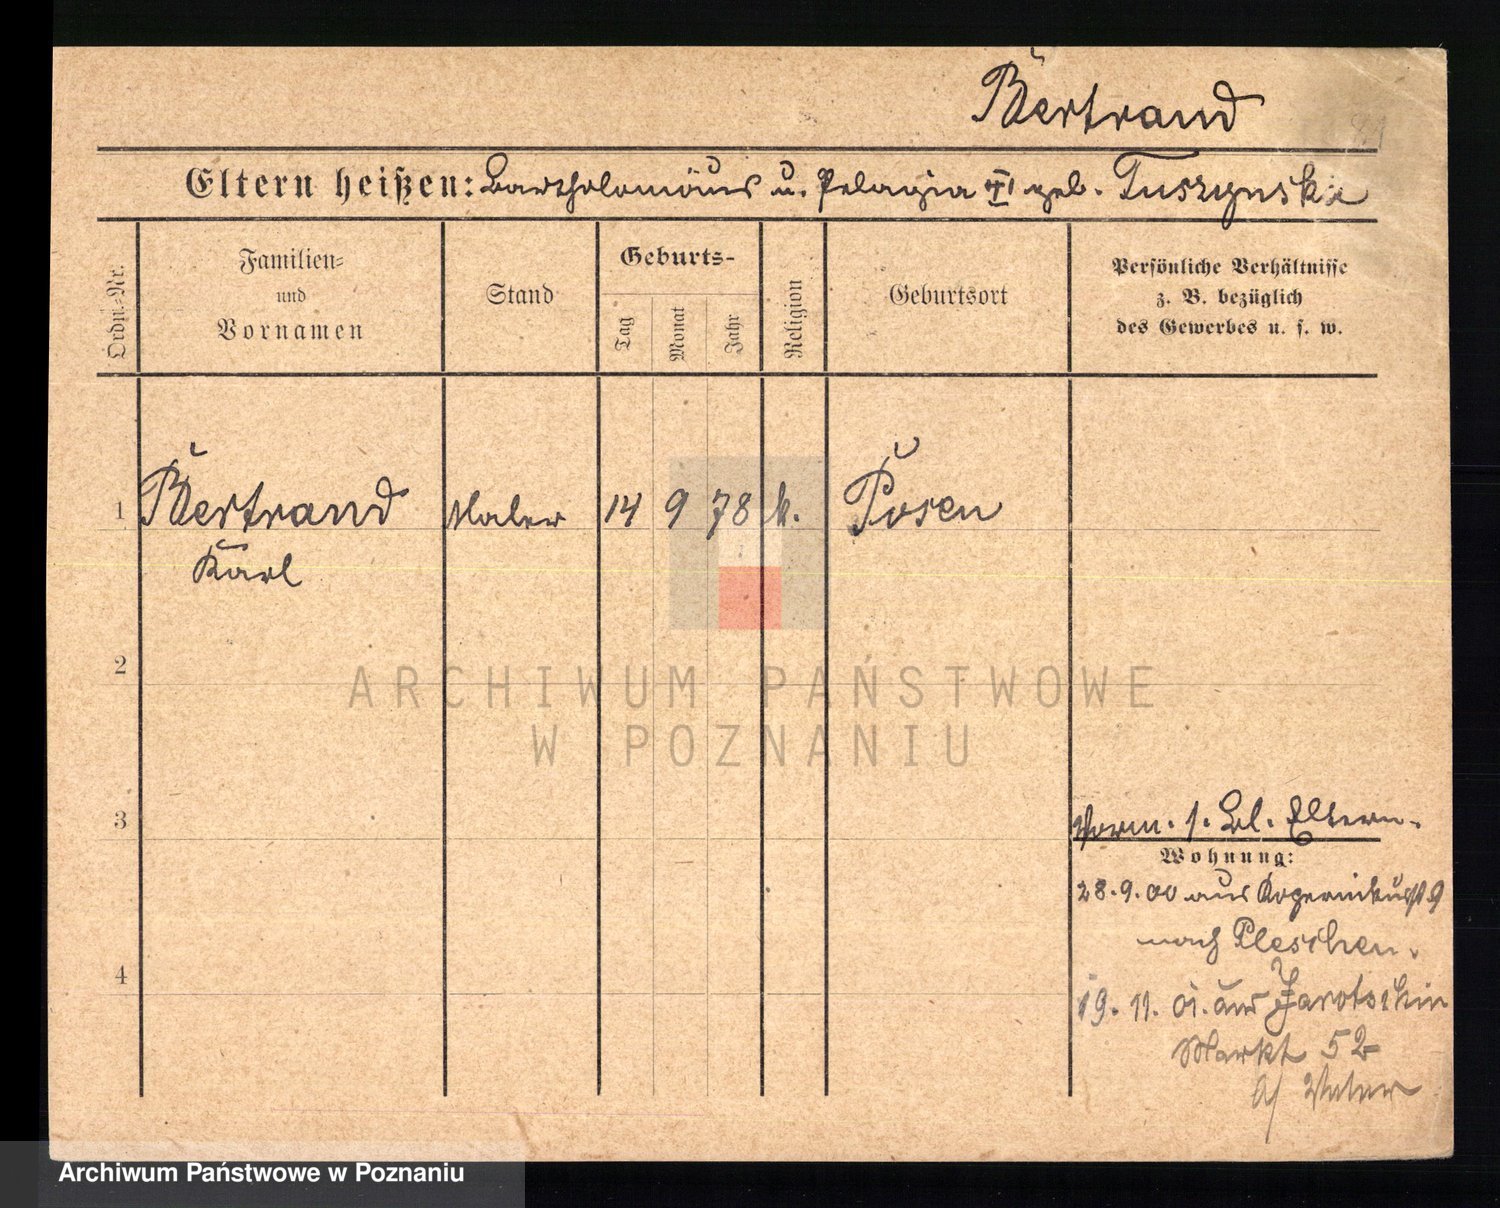 Bertrand
Eltern heißen: Bartholomäus u. Pelagia geb. Tuszynska
Ordn.-Nr.
Familien-
und
Vornamen
Stand
Geburts-
Tag
Monat
Jahr
Religion
Geburtsort
Persönliche Verhältnisse
z. B. bezüglich
des Gewerbes u. s. w.
1 Bertrand Maler 14 9 78 k. Posen
Karl
2
ARCHIWUM PAŃSTWOWE
W POZNANIU
3
Vorm. s. Bl. Eltern.
Wohnung:
28.9.00 aus Kopernikusst 9
nach Pleschen.
4
19.11.01. aus Jarotschin
Markt 52
b/ Vater
Archiwum Państwowe w Poznaniu